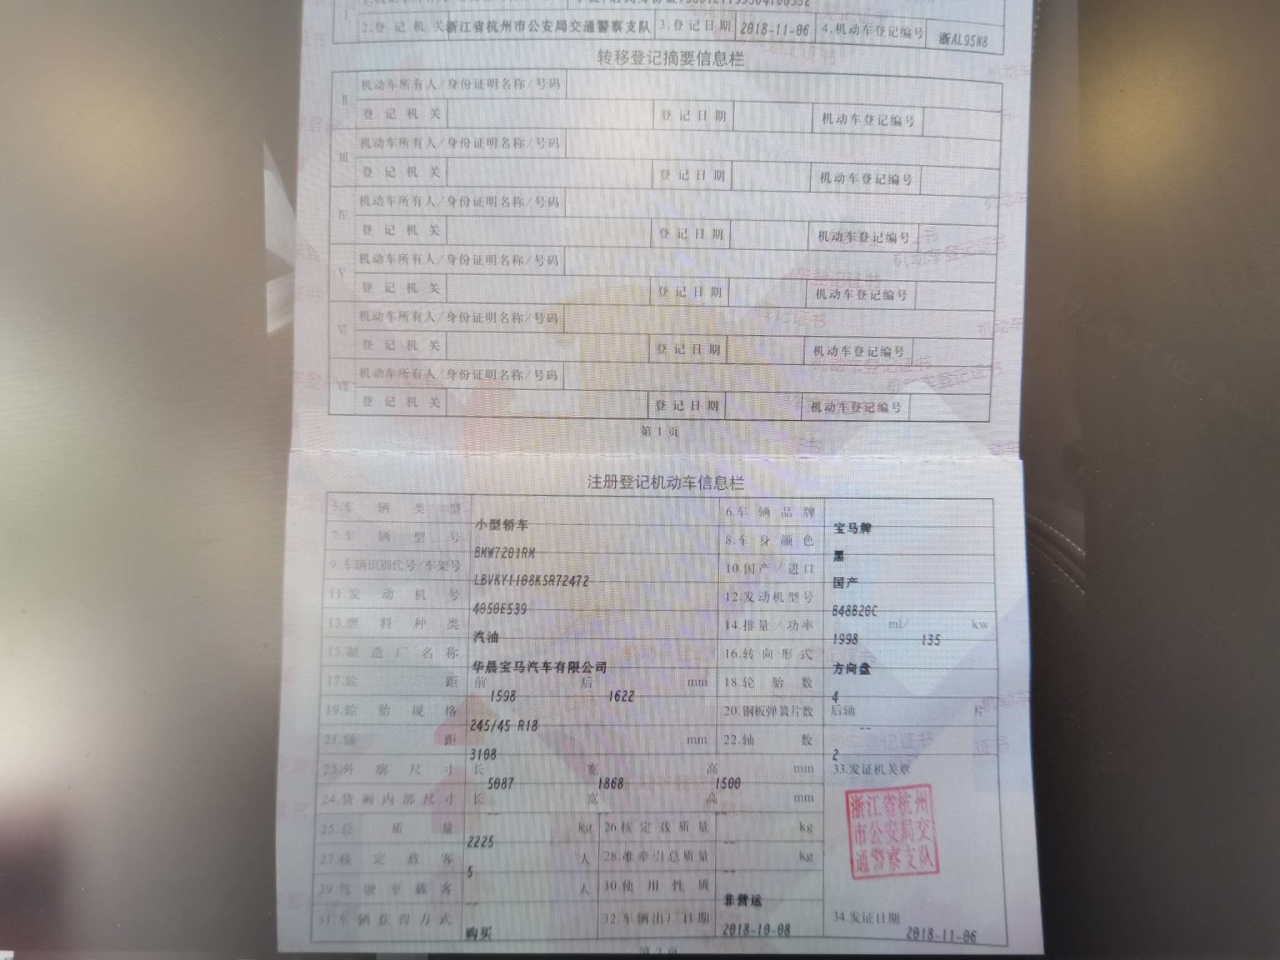 2.登记机关 浙江省杭州市公安局交通警察支队 3.登记日期 2018-11-06 4.机动车登记编号 浙AL95M8
转移登记摘要信息栏
II 机动车所有人/身份证明名称/号码
登记机关 登记日期 机动车登记编号
III 机动车所有人/身份证明名称/号码
登记机关 登记日期 机动车登记编号
IV 机动车所有人/身份证明名称/号码
登记机关 登记日期 机动车登记编号
V 机动车所有人/身份证明名称/号码
登记机关 登记日期 机动车登记编号
VI 机动车所有人/身份证明名称/号码
登记机关 登记日期 机动车登记编号
VII 机动车所有人/身份证明名称/号码
登记机关 登记日期 机动车登记编号
第1页
注册登记机动车信息栏
5.车辆类型 小型轿车 6.车辆品牌 宝马牌
7.车辆型号 BMW7201RM 8.车身颜色 黑
9.车辆识别代号/车架号 LBVKY1108KSR72472 10.国产/进口 国产
11.发动机号 4050E539 12.发动机型号 B48B20C
13.燃料种类 汽油 14.排量/功率 1998 ml/ 135 kw
15.制造厂名称 华晨宝马汽车有限公司 16.转向形式 方向盘
17.轮距 前 1598 后 1622 mm 18.轮胎数 4
19.轮胎规格 245/45 R18 20.钢板弹簧片数 后轴 -- 片
21.轴距 3108 mm 22.轴数 2
23.外廓尺寸 长 5087 宽 1868 高 1500 mm 33.发证机关章
24.货厢内部尺寸 长 -- 宽 -- 高 -- mm
浙江省杭州
市公安局交
通警察支队
25.总质量 2225 kg 26.核定载质量 -- kg
27.核定载客 5 人 28.准牵引总质量 -- kg
29.驾驶室载客 人 30.使用性质 非营运
31.车辆获得方式 购买 32.车辆出厂日期 2018-10-08 34.发证日期 2018-11-06
第2页